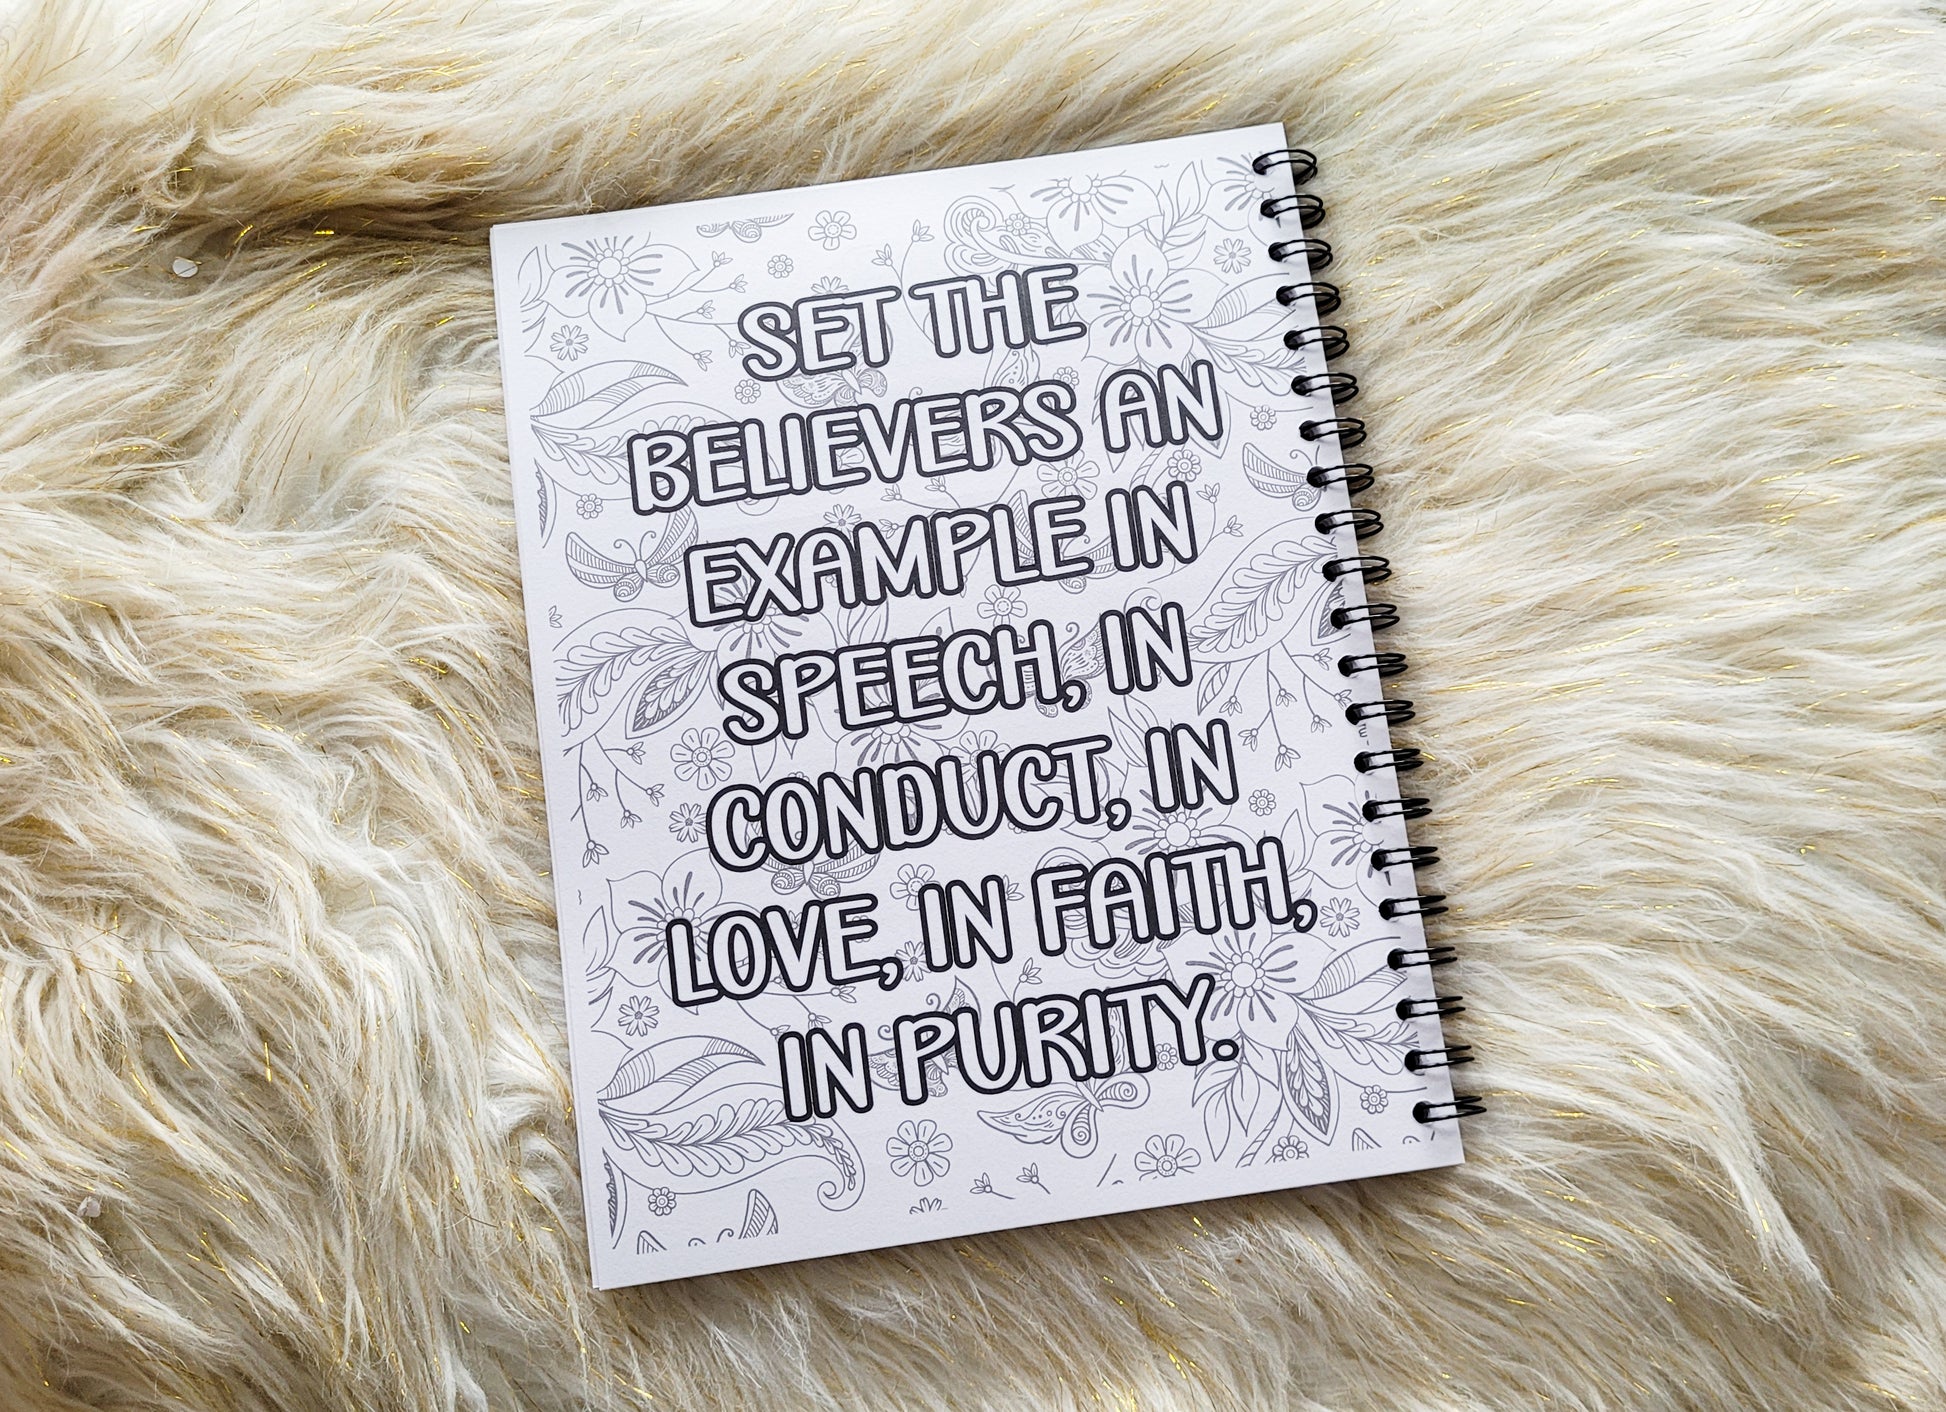 SET THE
BELIEVERS AN
EXAMPLE IN
SPEECH, IN
CONDUCT, IN
LOVE, IN FAITH,
IN PURITY.